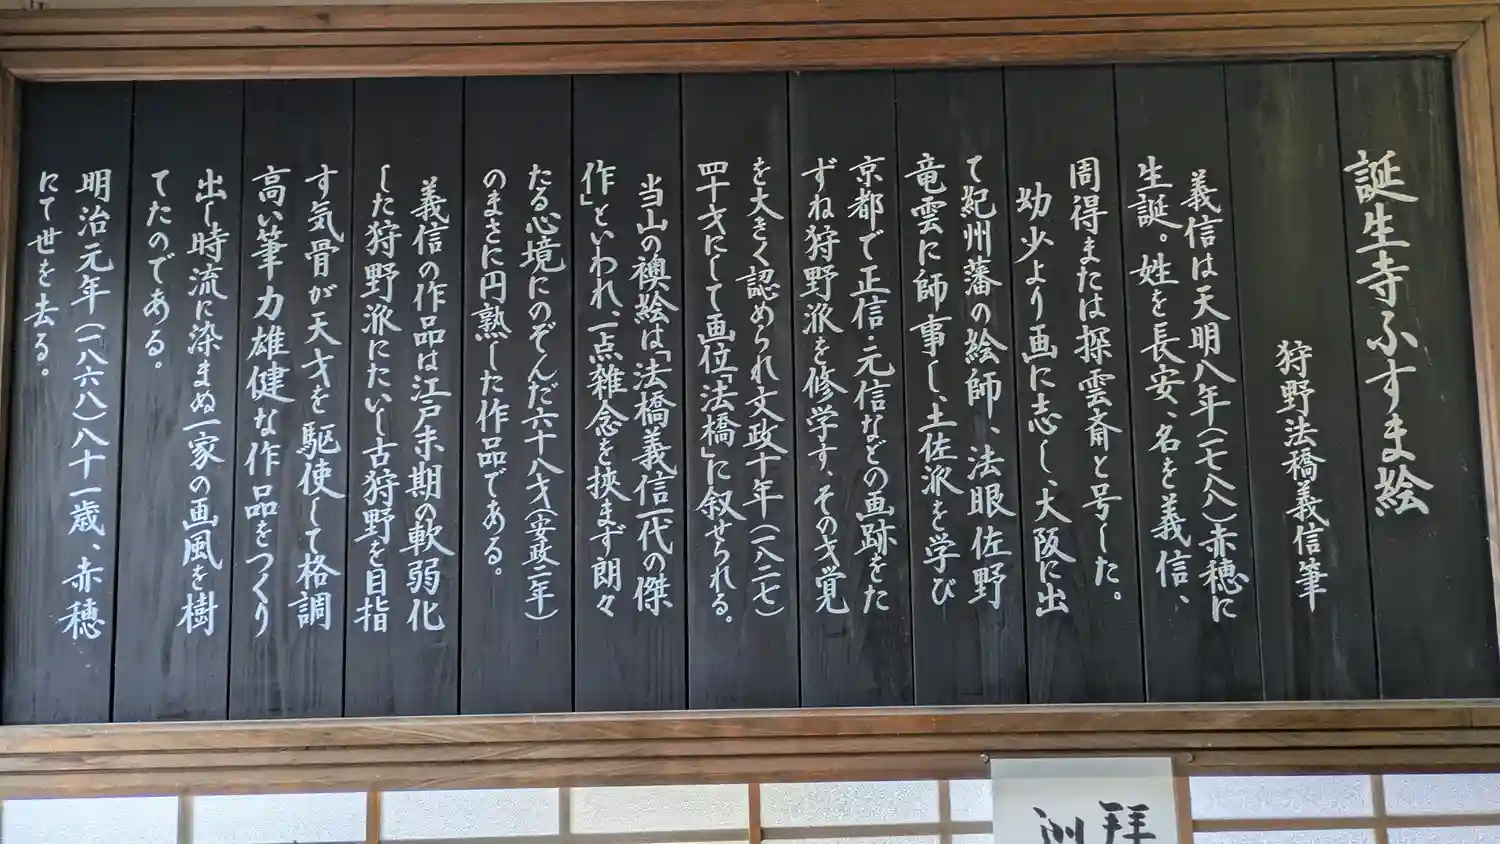 誕生寺ふすま絵
狩野法橋義信筆
義信は天明八年(一七八八)赤穂に
生誕。姓を長安、名を義信、
周得または探雲斎と号した。
幼少より画に志し、大阪に出
て紀州藩の絵師、法眼佐野
竜雲に師事し、土佐派を学び
京都で正信・元信などの画跡をた
ずね狩野派を修学す、その才覚
を大きく認められ文政十年(一八二七)
四十才にして画位「法橋」に叙せられる。
当山の襖絵は「法橋義信一代の傑
作」といわれ、一点雑念を挟まず朗々
たる心境にのぞんだ六十八才(安政二年)
のまさに円熟した作品である。
義信の作品は江戸末期の軟弱化
した狩野派にたいし古狩野を目指
す気骨が天才を駆使して格調
高い筆力雄健な作品をつくり
出し時流に染まぬ一家の画風を樹
てたのである。
明治元年(一八六八)八十一歳、赤穂
にて世を去る。
拝